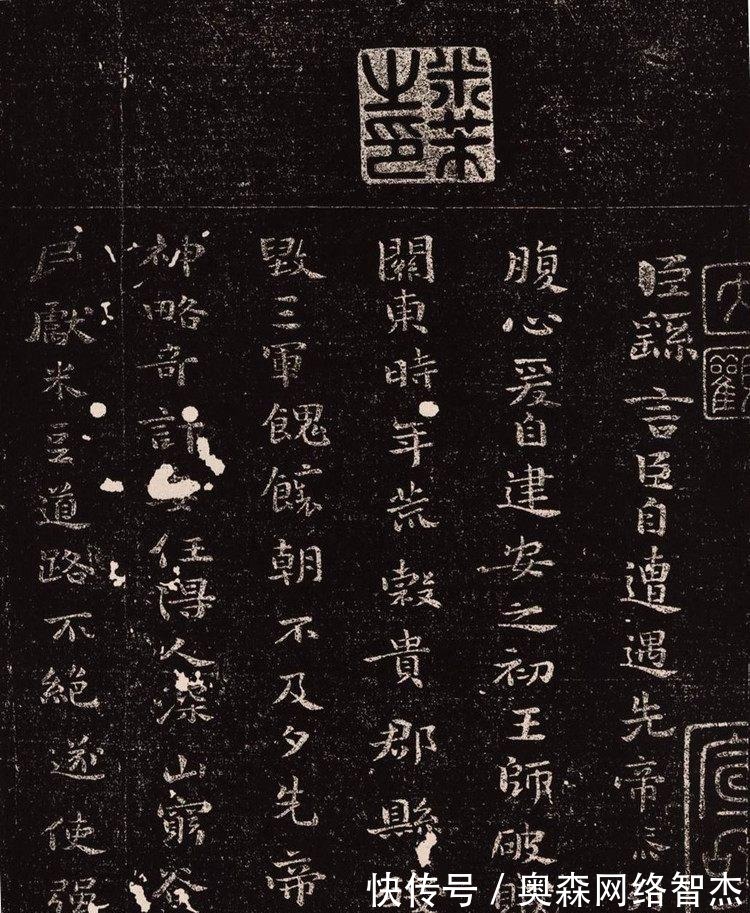 米芾之印
大觀
臣繇言臣自遭遇先帝忝
腹心爰自建安之初王師破賊
關東時年荒穀貴郡縣
毀三軍餽饟朝不及夕先帝
神略奇計任得人深山窮谷
民獻米豆道路不絕遂使强
快传号 / 奥森网络智杰